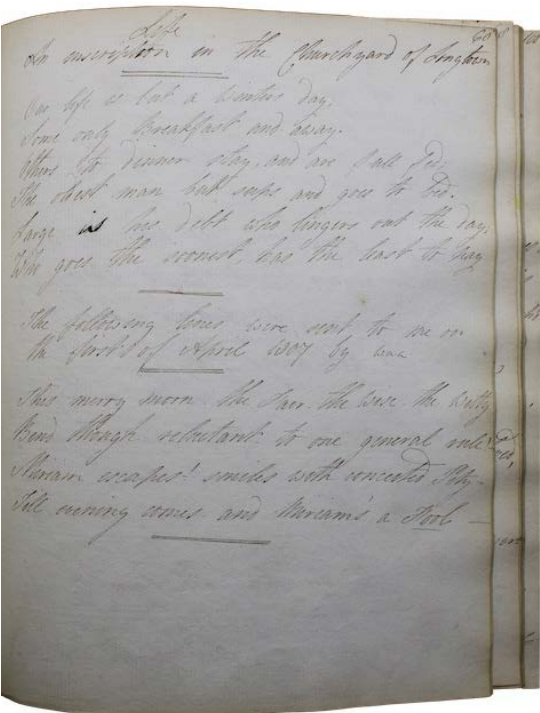 Life
An inscription in the Churchyard of
Our life is but a Winters day,
Some only Breakfast and away.
Others to dinner stay, and are full fed;
The oldest man but sups and goes to bed.
Large is his debt who lingers out the day;
Who goes the soonest, has the least to pay
The following lines were sent to me on
the first of April 1807 by
This merry morn the Fair the Wise the Witty
Bend though reluctant to one general rule
Miriam escapes! smiles with conceited Pity
Till evening comes and Miriam's a Fool